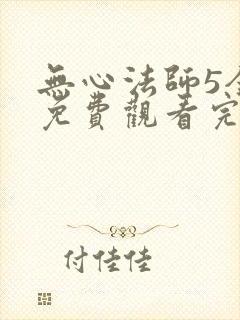 無心法師5
免費觀看完
付佳佳